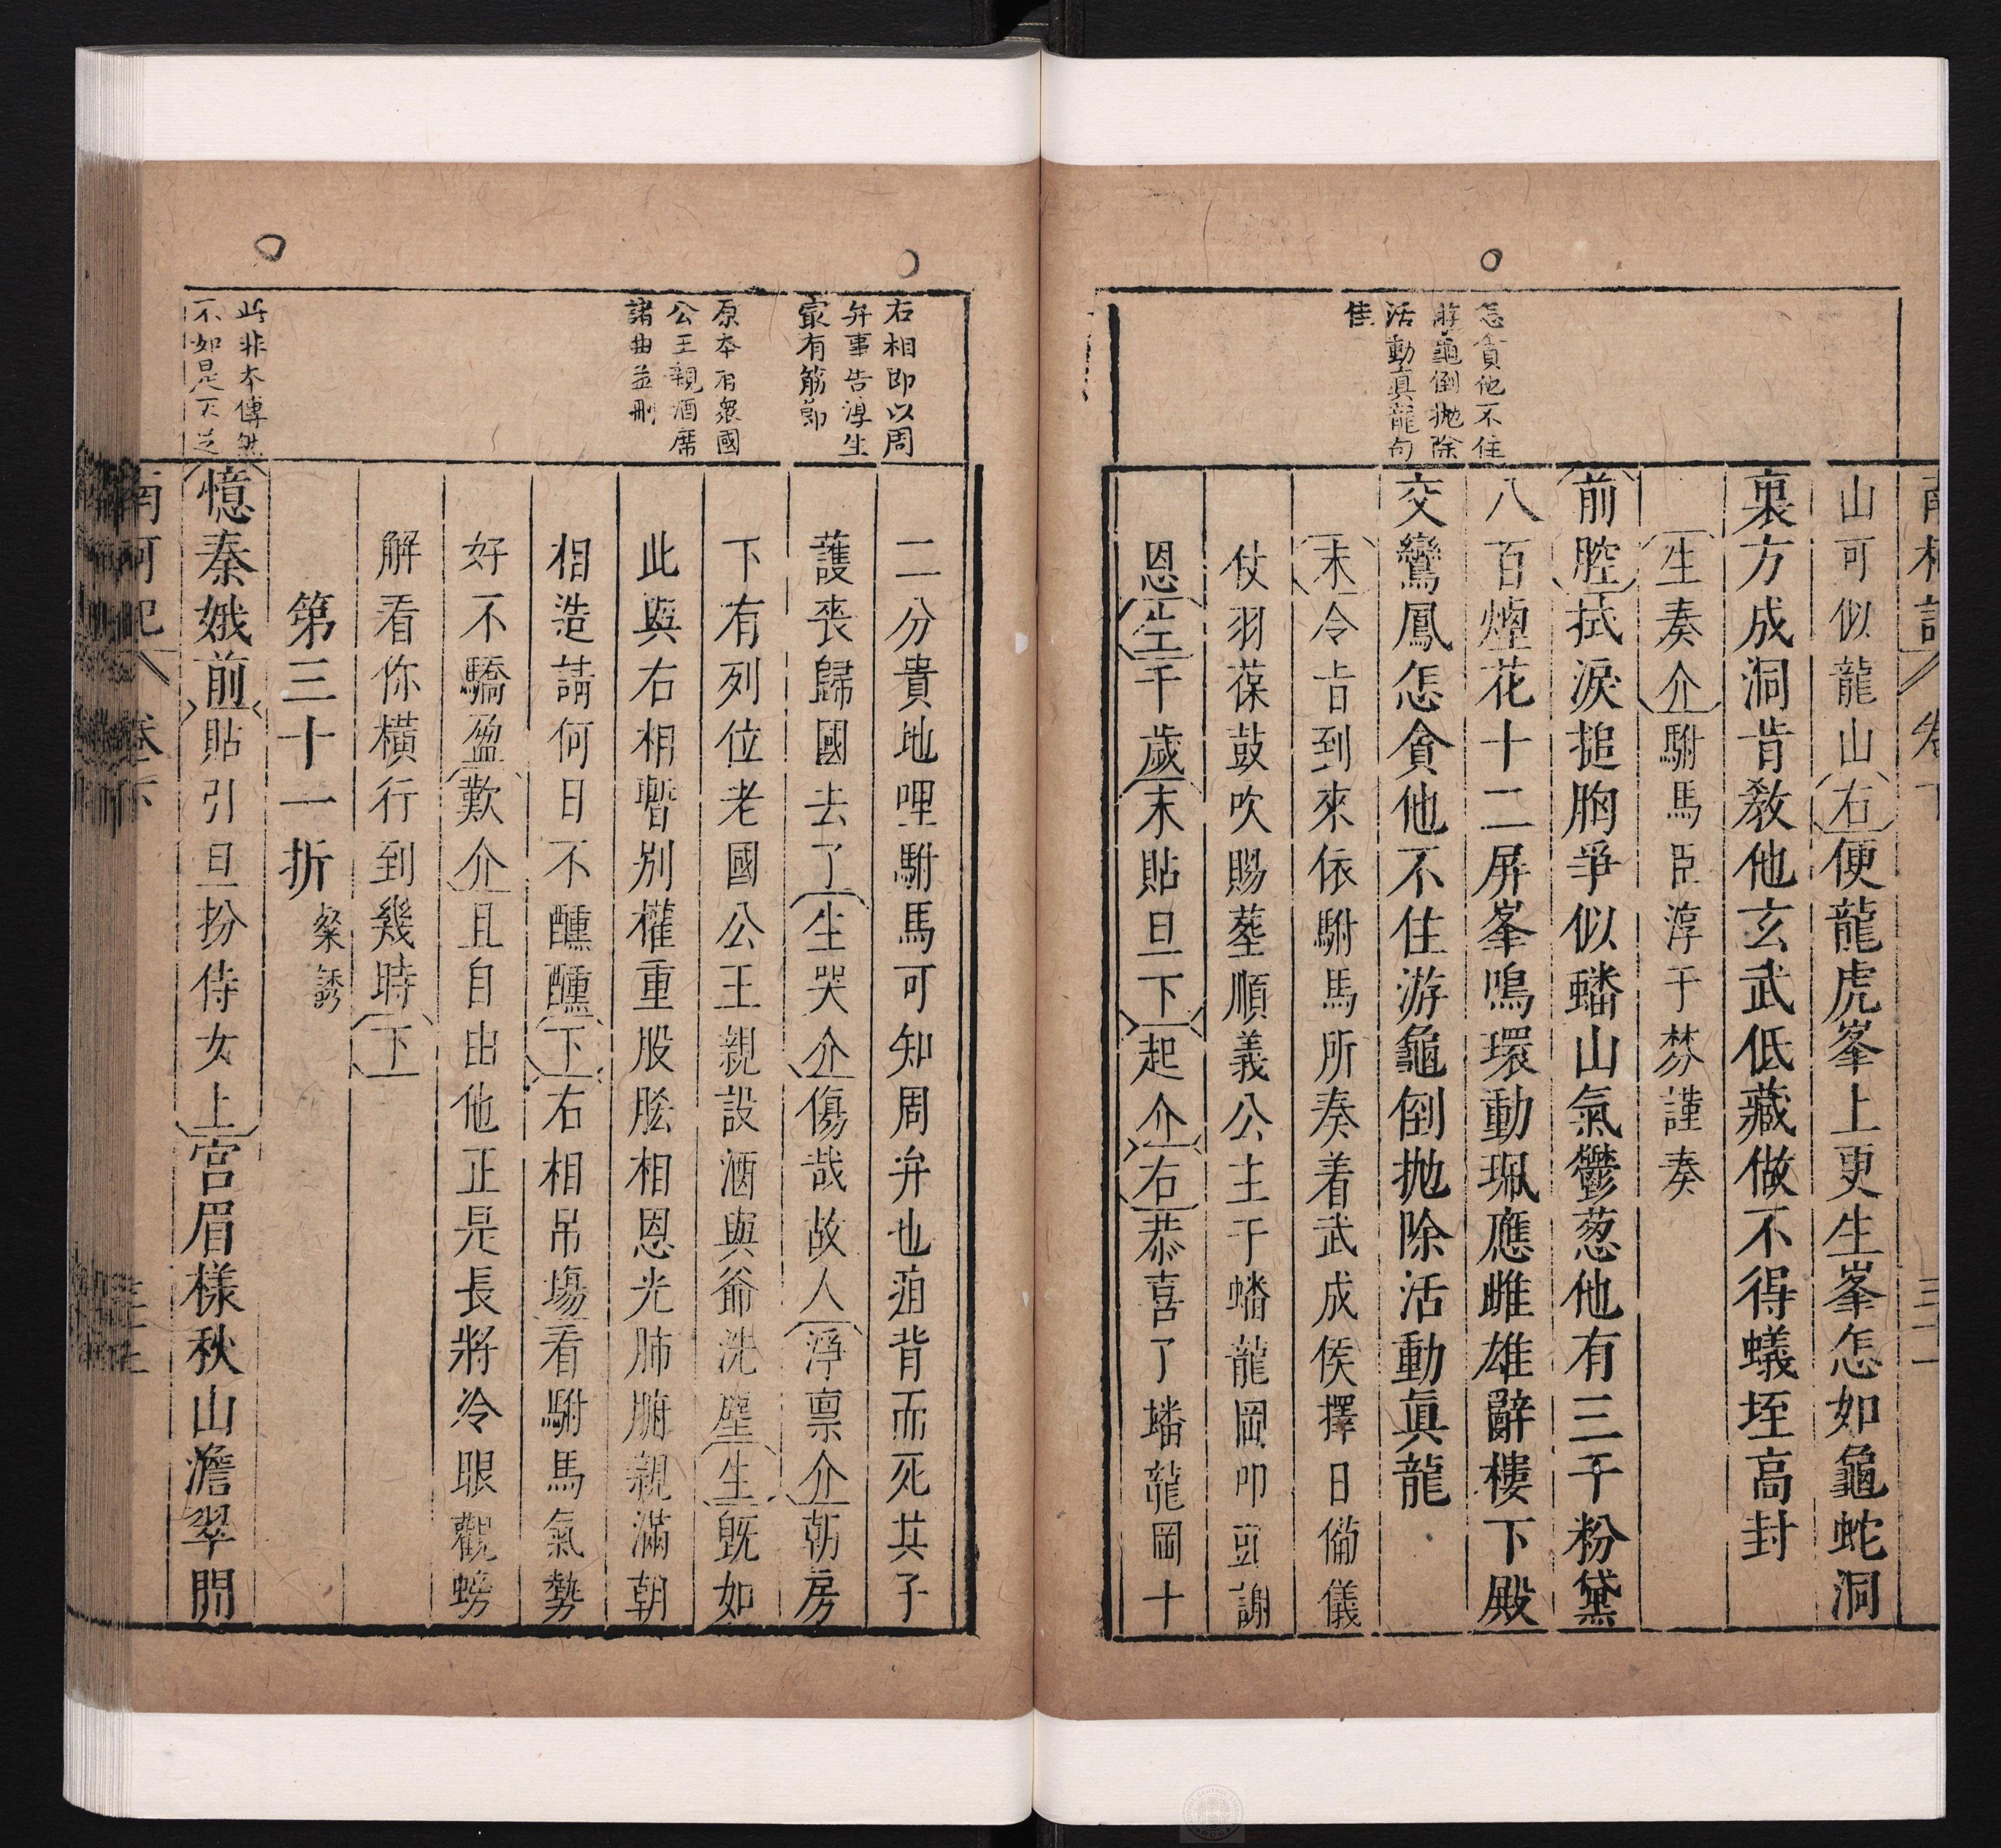 南柯記 卷下 三十一
怎貪他不住
游龜倒抛除
活動真龍句
佳
山可似龍山右便龍虎峯上更生峯怎如龜蛇洞
裏方成洞肯教他玄武低藏做不得蟻垤高封
生奏介駙馬臣淳于棼謹奏
前腔拭淚搥胸爭似蟠山氣鬱葱他有三千粉黛
八百煙花十二屏峯鳴環動珮應雌雄辭樓下殿
交鸞鳳怎貪他不住游龜倒抛除活動眞龍
末令旨到來依駙馬所奏着武成侯擇日備儀
仗羽葆鼓吹賜塟順義公主于蟠龍岡叩頭謝
恩生千歲末貼旦下起介右恭喜了蟠龍岡十
右相即以周
弁事告淳生
㝡有筋節
原本有衆國
公王親酒席
諸曲並刪
此非本傳然
不如是不足
二分貴地哩駙馬可知周弁也疽背而死其子
護喪歸國去了生哭介傷哉故人淨禀介朝房
下有列位老國公王親設酒與爺洗塵生旣如
此與右相暫別權重股肱相恩光肺腑親滿朝
相造請何日不醺醺下右相吊場看駙馬氣勢
好不驕盈歎介且自由他正是長將冷眼觀螃
解看你橫行到幾時下
第三十一折 粲誘
憶秦娥前貼引旦扮侍女上宮眉樣秋山澹翠閒
南柯記 卷下